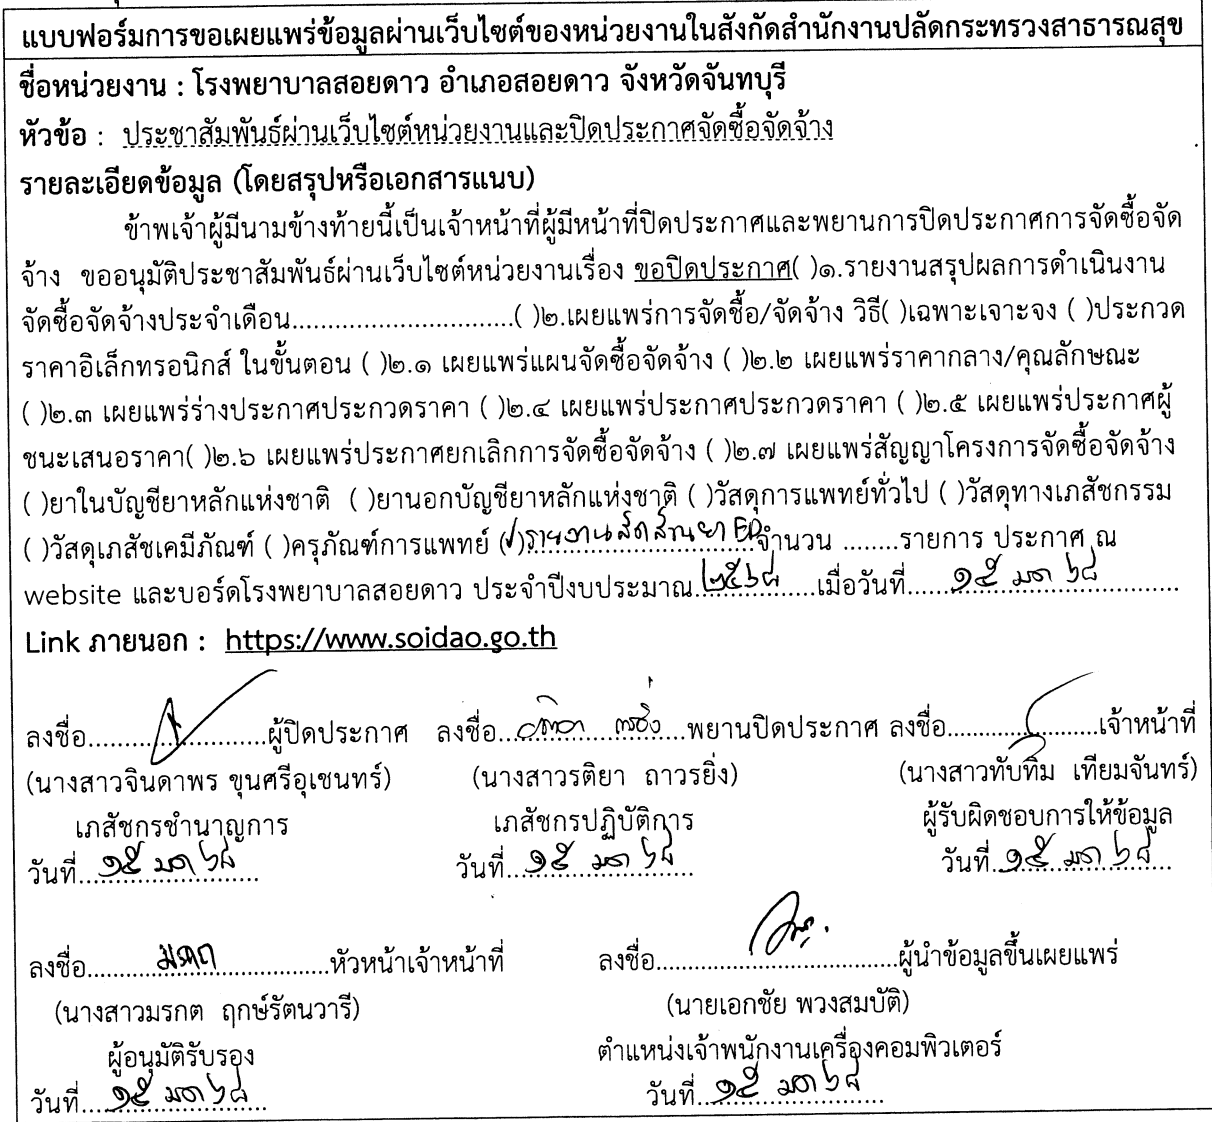 แบบฟอร์มการขอเผยแพร่ข้อมูลผ่านเว็บไซต์ของหน่วยงานในสังกัดสำนักงานปลัดกระทรวงสาธารณสุข
ชื่อหน่วยงาน : โรงพยาบาลสอยดาว อำเภอสอยดาว จังหวัดจันทบุรี
หัวข้อ : ประชาสัมพันธ์ผ่านเว็บไซต์หน่วยงานและปิดประกาศจัดซื้อจัดจ้าง
รายละเอียดข้อมูล (โดยสรุปหรือเอกสารแนบ)
ข้าพเจ้าผู้มีนามข้างท้ายนี้เป็นเจ้าหน้าที่ผู้มีหน้าที่ปิดประกาศและพยานการปิดประกาศการจัดซื้อจัด
จ้าง ขออนุมัติประชาสัมพันธ์ผ่านเว็บไซต์หน่วยงานเรื่อง ขอปิดประกาศ( )๑.รายงานสรุปผลการดำเนินงาน
จัดซื้อจัดจ้างประจำเดือน...............................( )๒.เผยแพร่การจัดซื้อ/จัดจ้าง วิธี( )เฉพาะเจาะจง ( )ประกวด
ราคาอิเล็กทรอนิกส์ ในขั้นตอน ( )๒.๑ เผยแพร่แผนจัดซื้อจัดจ้าง ( )๒.๒ เผยแพร่ราคากลาง/คุณลักษณะ
( )๒.๓ เผยแพร่ร่างประกาศประกวดราคา ( )๒.๔ เผยแพร่ประกาศประกวดราคา ( )๒.๕ เผยแพร่ประกาศผู้
ชนะเสนอราคา( )๒.๖ เผยแพร่ประกาศยกเลิกการจัดซื้อจัดจ้าง ( )๒.๗ เผยแพร่สัญญาโครงการจัดซื้อจัดจ้าง
( )ยาในบัญชียาหลักแห่งชาติ ( )ยานอกบัญชียาหลักแห่งชาติ ( )วัสดุการแพทย์ทั่วไป ( )วัสดุทางเภสัชกรรม
( )วัสดุเภสัชเคมีภัณฑ์ ( )ครุภัณฑ์การแพทย์ (/)รายงานสัดส่วนยา ED จำนวน ........รายการ ประกาศ ณ
website และบอร์ดโรงพยาบาลสอยดาว ประจำปีงบประมาณ..๒๕๖๘......เมื่อวันที่......๑๕ มค ๖๘............
Link ภายนอก : https://www.soidao.go.th
ลงชื่อ.........................ผู้ปิดประกาศ ลงชื่อ...รติยา ถาวรยิ่ง...พยานปิดประกาศ ลงชื่อ.....................เจ้าหน้าที่
(นางสาวจินดาพร ขุนศรีอุเชนทร์) (นางสาวรติยา ถาวรยิ่ง) (นางสาวทับทิม เทียมจันทร์)
เภสัชกรชำนาญการ เภสัชกรปฏิบัติการ ผู้รับผิดชอบการให้ข้อมูล
วันที่...๑๕ มค ๖๘.... วันที่...๑๕ มค ๖๘.... วันที่..๑๕ มค ๖๘...
ลงชื่อ..........มรกต................หัวหน้าเจ้าหน้าที่ ลงชื่อ..................................ผู้นำข้อมูลขึ้นเผยแพร่
(นางสาวมรกต ฤกษ์รัตนวารี) (นายเอกชัย พวงสมบัติ)
ผู้อนุมัติรับรอง ตำแหน่งเจ้าพนักงานเครื่องคอมพิวเตอร์
วันที่....๑๕ มค ๖๘... วันที่...๑๕ มค ๖๘....